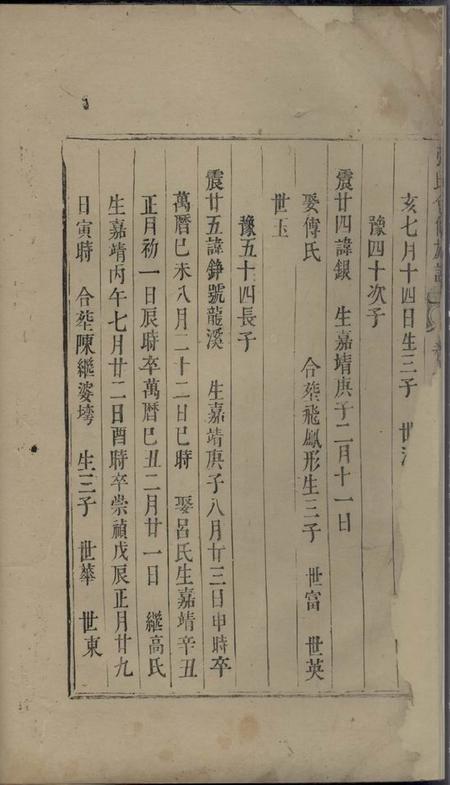 亥七月十四日生三子 世
豫四十次子
震廿四諱銀 生嘉靖庚子二月十一日
娶傅氏 合塟飛鳳形生三子 世富 世英
世玉
豫五十四長子
震廿五諱錚號龍溪 生嘉靖庚子八月廿三日申時卒
萬曆己未八月二十二日巳時 娶呂氏生嘉靖辛丑
正月初一日辰時卒萬曆己丑二月廿一日 繼高氏
生嘉靖丙午七月廿二日酉時卒崇禎戊辰正月廿九
日寅時 合塟陳繼婆塆 生三子 世華 世東